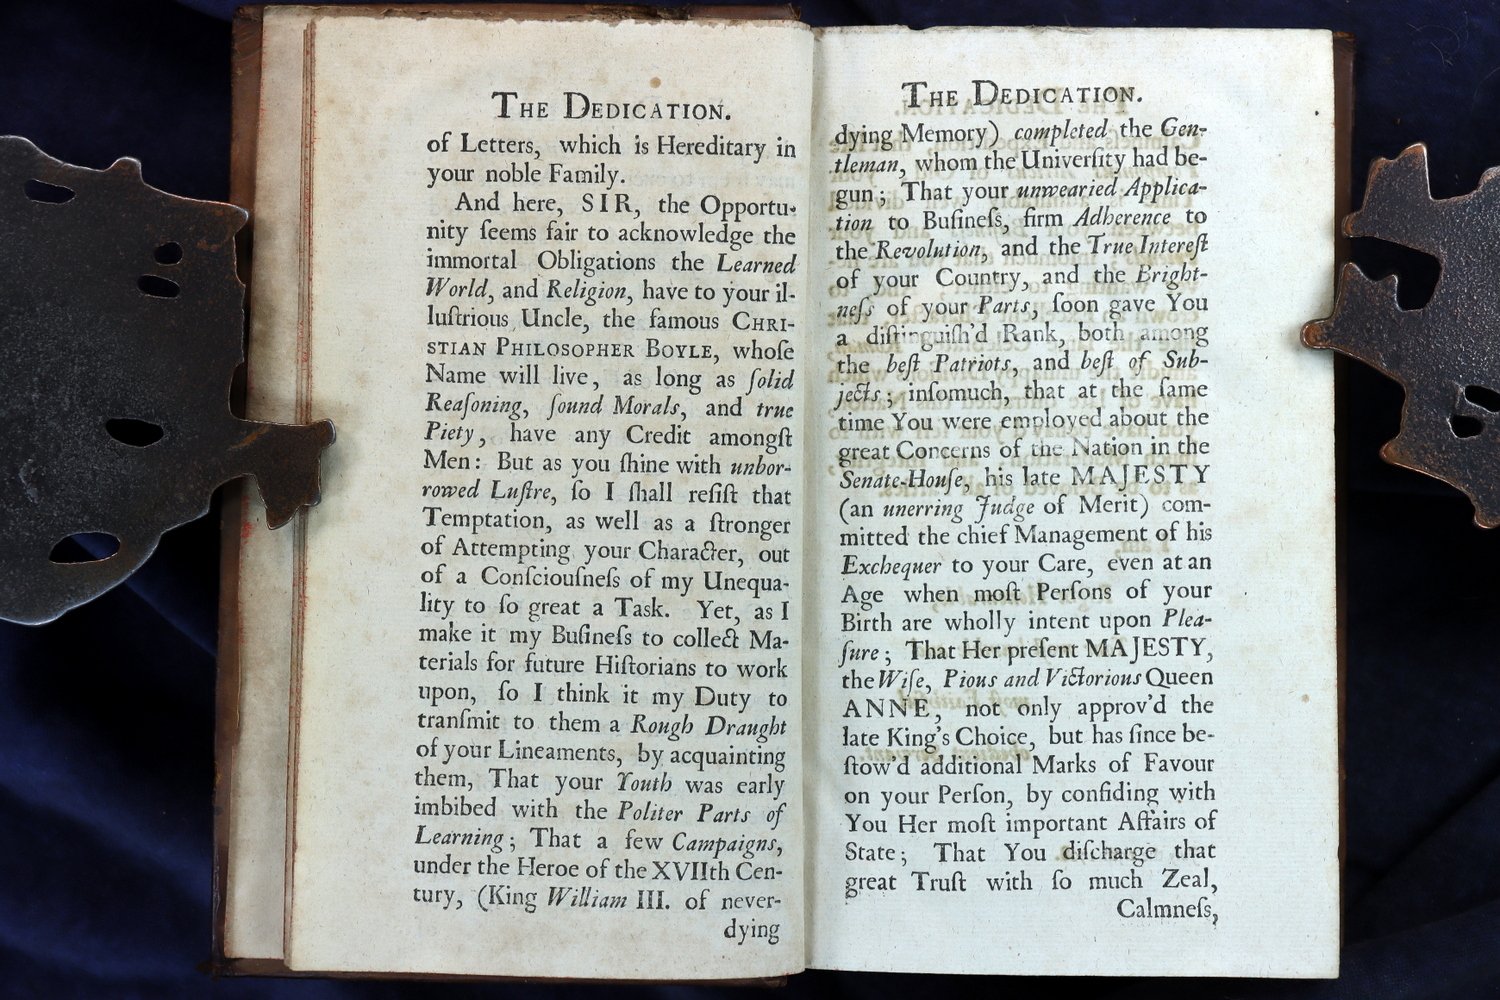 THE DEDICATION.
of Letters, which is Hereditary in
your noble Family.
And here, SIR, the Opportu-
nity ſeems fair to acknowledge the
immortal Obligations the Learned
World, and Religion, have to your il-
luſtrious Uncle, the famous CHRI-
STIAN PHILOSOPHER BOYLE, whoſe
Name will live, as long as ſolid
Reaſoning, ſound Morals, and true
Piety, have any Credit amongſt
Men: But as you ſhine with unbor-
rowed Luſtre, ſo I ſhall reſiſt that
Temptation, as well as a ſtronger
of Attempting your Character, out
of a Conſciouſneſs of my Unequa-
lity to ſo great a Task. Yet, as I
make it my Buſineſs to collect Ma-
terials for future Hiſtorians to work
upon, ſo I think it my Duty to
tranſmit to them a Rough Draught
of your Lineaments, by acquainting
them, That your Youth was early
imbibed with the Politer Parts of
Learning; That a few Campaigns,
under the Heroe of the XVIIth Cen-
tury, (King William III. of never-
dying
THE DEDICATION.
dying Memory) completed the Gen-
tleman, whom the Univerſity had be-
gun; That your unwearied Applica-
tion to Buſineſs, firm Adherence to
the Revolution, and the True Intereſt
of your Country, and the Bright-
neſs of your Parts, ſoon gave You
a diſtinguiſh'd Rank, both among
the beſt Patriots, and beſt of Sub-
jects; inſomuch, that at the ſame
time You were employed about the
great Concerns of the Nation in the
Senate-Houſe, his late MAJESTY
(an unerring Judge of Merit) com-
mitted the chief Management of his
Exchequer to your Care, even at an
Age when moſt Perſons of your
Birth are wholly intent upon Plea-
ſure; That Her preſent MAJESTY,
the Wiſe, Pious and Victorious Queen
ANNE, not only approv'd the
late King's Choice, but has ſince be-
ſtow'd additional Marks of Favour
on your Perſon, by confiding with
You Her moſt important Affairs of
State; That You diſcharge that
great Truſt with ſo much Zeal,
Calmneſs,